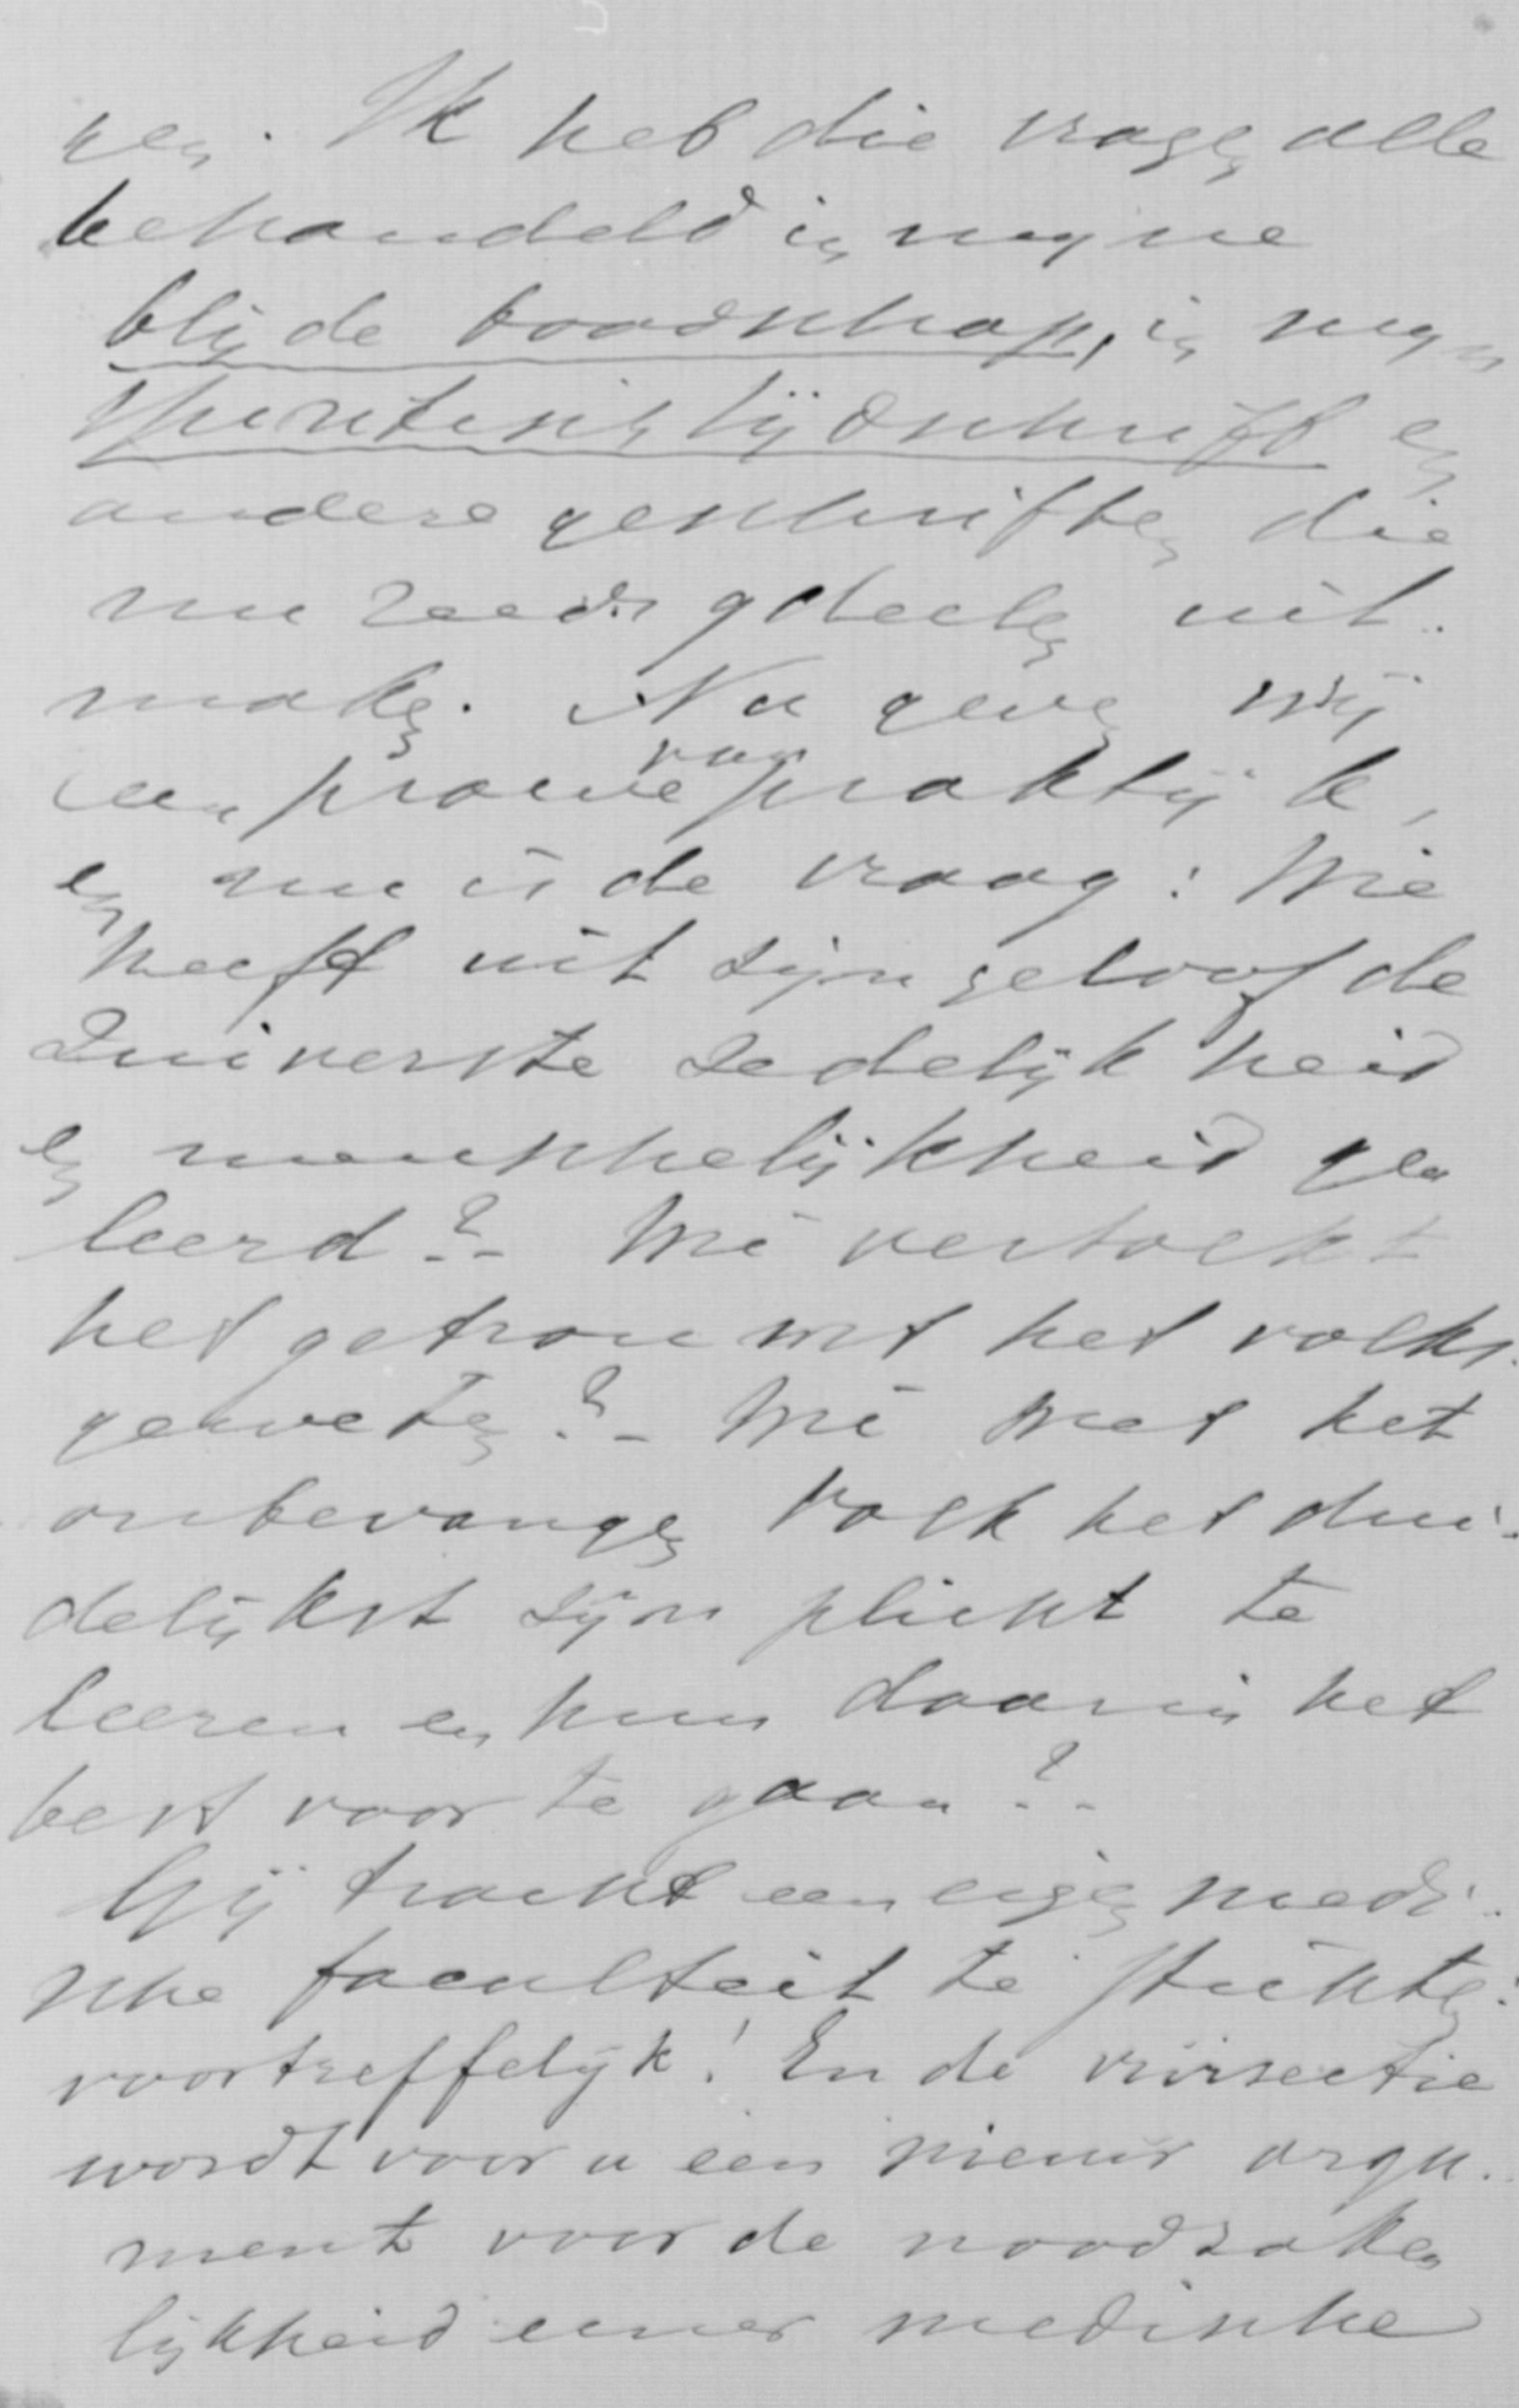 gen. Ik heb die vragen alle
behandeld in mijne
blijde boodschap, in mijn
Spiritisch tijdschrift en
andere geschriften die
nu reeds gdeelten uit-
maken. Nu geven wij
een proeve van praktijk,
en nu is de vraag: Wie
heeft uit zijn geloof de
Zuiverste Zedelijkheid
en menschelijkheid ge
leerd? - Wie vertolkt
het getrouwst het volks-
geweten? - Wie weet het
onbevangen volk het dui-
delijkst zijn plicht te
leeren en hun daarin het
best voor te gaan? -
Gij tracht een eigen medi-
sche faculteit te stichten:
voortreffelijk! En de vivisectie
wordt voor u een nieuw argu-
ment voor de noodzake
lijkheid eener medische